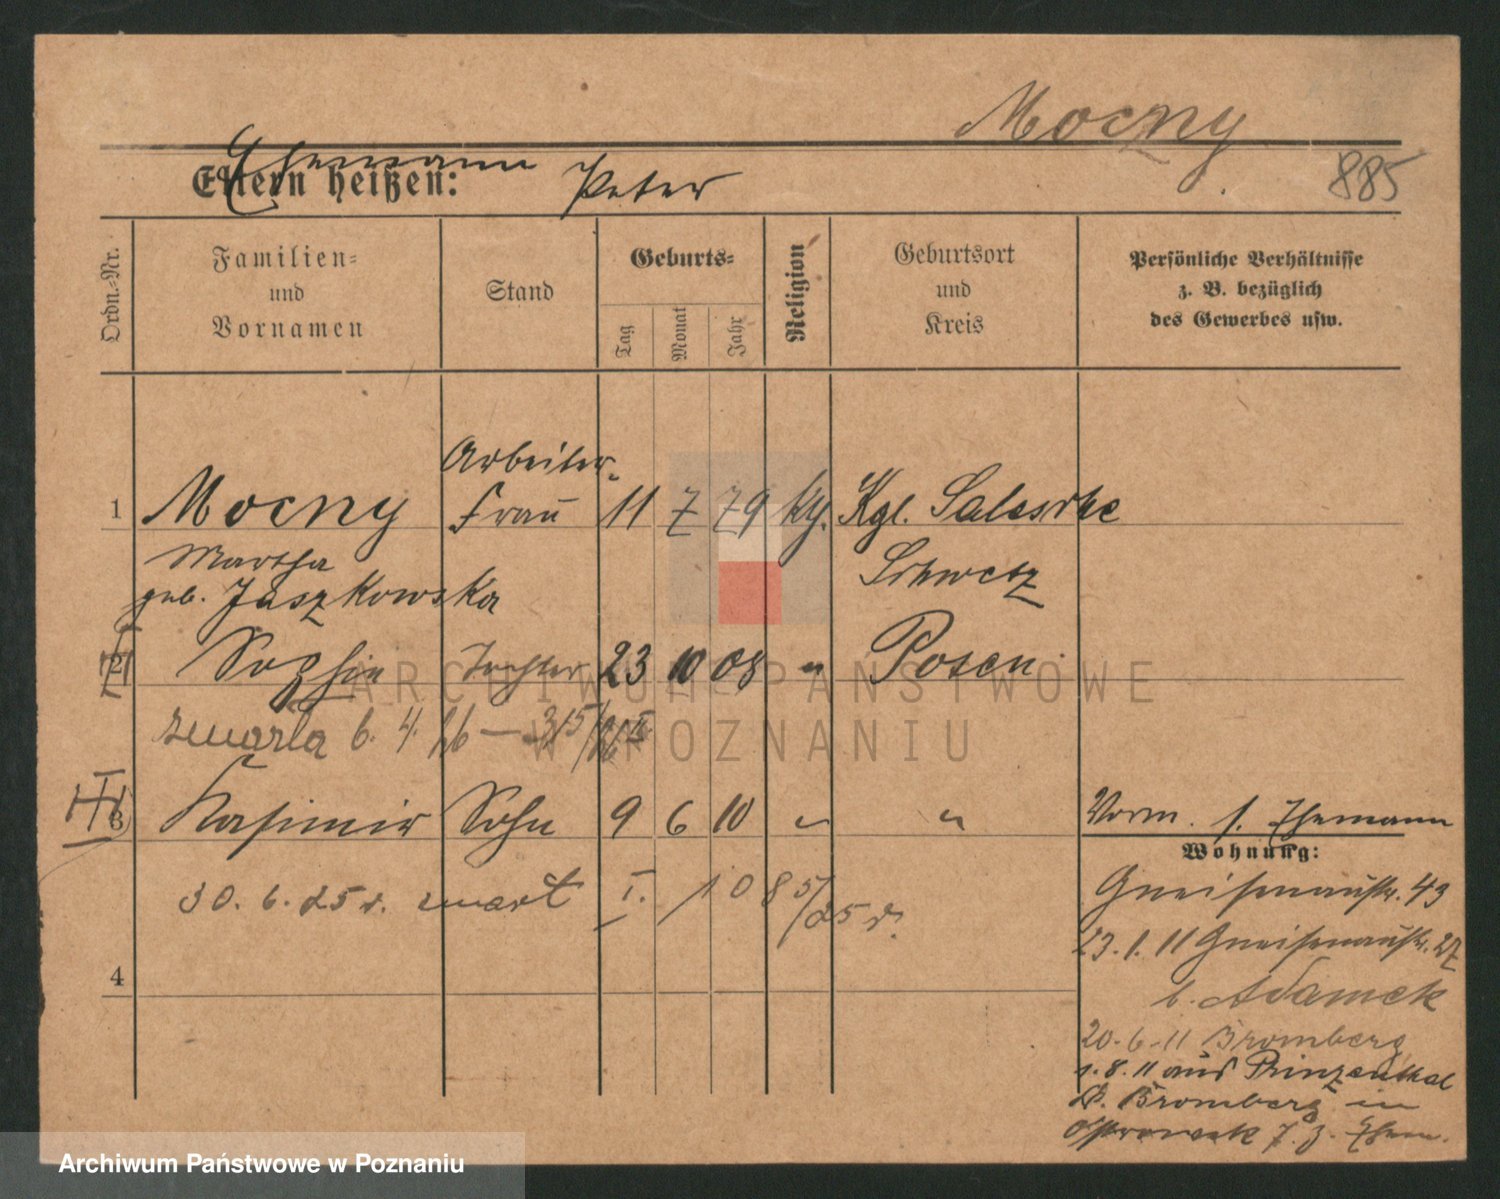 Mocny
885
Ehemann
Eltern heißen: Peter
Ordn.-Nr.
Familien- und Vornamen
Stand
Geburts-
Tag
Monat
Jahr
Religion
Geburtsort und Kreis
Persönliche Verhältnisse z. B. bezüglich des Gewerbes usw.
Arbeiter-
1 Mocny Frau 11 7 79 kth. Kgl. Salesche
Martha Schwetz
geb. Jaszkowska
2 Sophie Tochter 23 10 08 " Posen
zmarła 6. 4. 16 – 315/16 I
3 Kasimir Sohn 9 6 10 " "
Vorm. s. Ehemann
Wohnung:
30. 6. 25 r. zmarł I. 1085/25 r.
Gneisenaustr. 43
23. 1. 11 Gneisenaustr. 27
b. Adamek
4
20. 6. 11 Bromberg
1. 8. 11 aus Prinzenthal
Kr. Bromberg in
7. z. Ehem.
ARCHIWUM PAŃSTWOWE
W POZNANIU
Archiwum Państwowe w Poznaniu